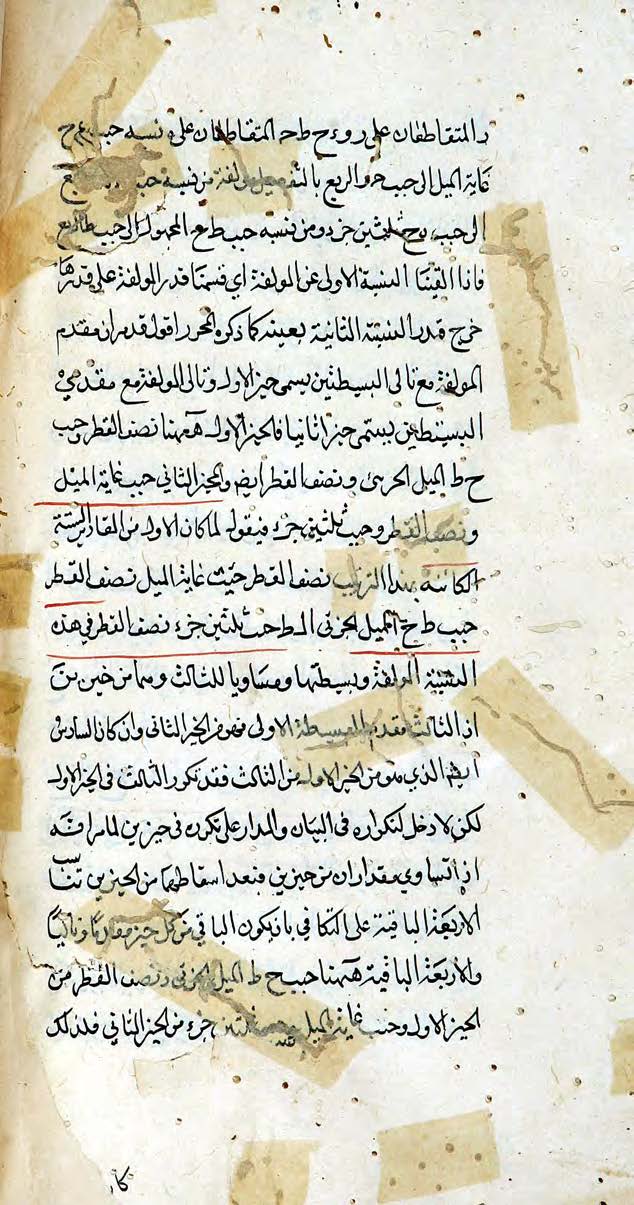 ر المتقاطعان على روع ح ط حه المتقاطعان على ه نسبه جيب ع ح
غاية الميل الى جيب حر الربع بالتفصيل مولفة من نسبة
الى جيب وح ثلثين جزء ومن نسبه جيب ط ع المجهول الى جيب طا الربع
فاذا القينا النسبة الاولى عن المولفة اي قسمنا قدر المولفة على قدرها
خرج قدر النسبة الثانية بعينه كما ذكره المحرر اقول قد مر ان مقدم
المولفة مع تالى البسيطتين يسمى حيز الاول وتالى المولفة مع مقدمي
البسيطتين يسمى حيزا ثانيا فالحيز الاول ههنا نصف القطر وجيب
ح ط الميل الجزئى ونصف القطر ايضا والحيز الثاني جيب غاية الميل
ونصف القطر وجيب ثلثين جزء فيقول لما كان الاول من المقادير الستة
الكائنه بهذا الترتيب نصف القطر جيب غاية الميل نصف القطر
جيب ط ح الميل الجزئى الـ ط جيب ثلثين جزء نصف القطر في هذه
النسبة المولفة وبسيطتها ومساويا للثالث وهما من حيزين
اذ الثالث مقدم البسيطة الاولى فهو من الحيز الثانى وان كان السادس
ايضا الذي هو من الحيز الاول من الثالث فقد تكرر الثالث فى الحيز الاول
لكن لا دخل لتكراره فى البيان والمدار على تكرره فى حيزين لما مر انه
اذا تساوي مقداران من حيزين فبعد اسقاطهما من الحيزين تناسب
الاربعة الباقية على التكافي بان يكون الباقي من كل حيز مقدما وتاليا
والاربعة الباقية ههنا جيب ح ط الميل الجزئى ونصف القطر من
الحيز الاول وجيب غاية الميل وجيب ثلثين جزء من الحيز الثاني فلذلك
كا